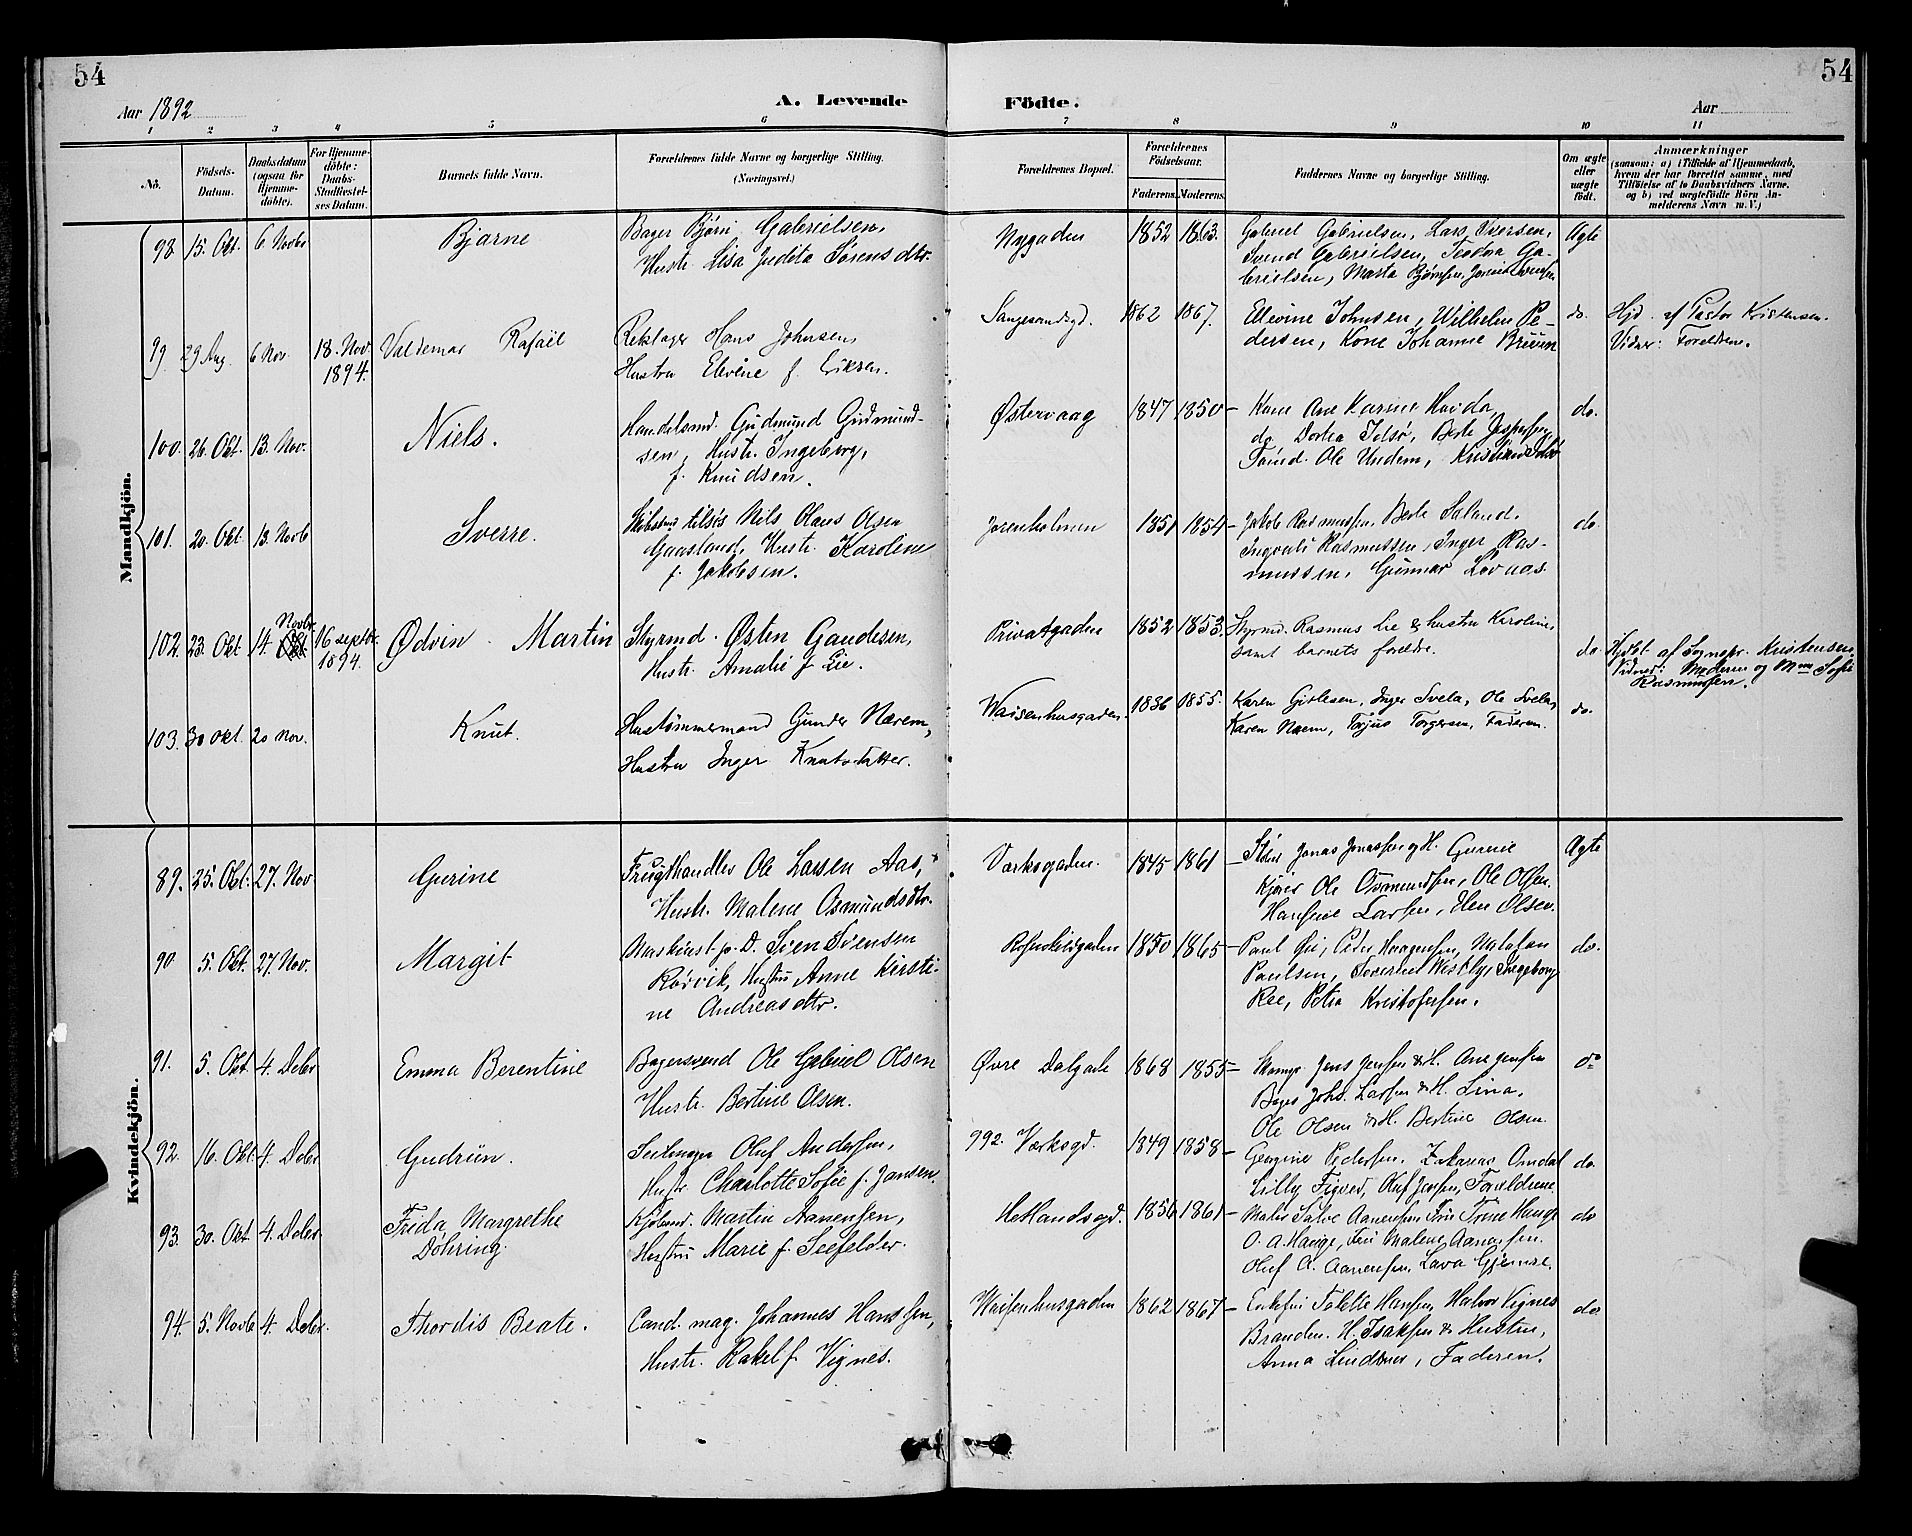 54
54
Aar 1892
A. Levende
Födte.
Aar
1 2 3 4 5 6 7 8 9 10 11
No.
Födsels-Datum.
Daabsdatum (ogsaa for Hjemme-döbte).
For Hjemme-döbte: Daabs-Stadfæstel-ses Datum.
Barnets fulde Navn.
Forældrenes fulde Navne og borgerlige Stilling. (Næringsvei.)
Forældrenes Bopæl.
Forældrenes Födselsaar.
Faderens. Moderens.
Faddernes Navne og borgerlige Stilling.
Om ægte eller uægte födt.
Anmærkninger
(saasom: a) i Tilfælde af Hjemmedaab, hvem der har forrettet samme, med Tilföielse af to Daabsvidners Navne. og b) ved uægtefödte Börn An-melderens Navn m. V.)
Mandkjön.
98. 15. Okt. 6 Novbr Bjarne
Bager Bjørn Gabrielsen,
Hustr. Lisa Judita Sørensdtr.
Nygaden 1852 1863.
Gabriel Gabrielsen, Lars Iversen,
Svend Gabrielsen, Teodora Ga-
brielsen, Marta Bjørnsen,
Ægte
99 29 Aug. 6 Nov. 18. Nov 1894. Valdemar Rafael
Rektager Hans Johnsen,
Hustru Elevine f. Eriksen.
Sangesandsgd. 1862 1867.
Ellevine Johnsen, Wilhelm Pe-
dersen, Kone Johanne
do.
Hjd. af Pastor Kristensen.
Vidner: Foreldren.
100. 26. Okt. 13. Nov. Niels.
Handelsmd. Gudmund Gudmund-
sen, Hustr. Ingeborg,
f. Knudsen.
Østervaag 1847 1850
Kone Ane Karine
do Dortea Idsø, Berte Jespersen
Ole Undem, Kristian Idsø
do.
101. 20. Okt. 13. Novb Sverre.
Nils Olaus Olsen
Gaasland, Hustr. Karoline
f. Jakobsen.
Jorenholmen 1851 1854
Jakob Rasmussen, Berte Saland.
Ingvald Rasmussen, Inger Ras-
mussen, Gunnar
do
102. 23. Okt Novbr 14. Okt 16 septbr. 1894. Ødvin Martin
Styrmd. Østen Gaudesen,
Hustr. Amalie f. Lie.
Privatgaden 1852 1853.
Styrmd. Rasmus Lie & hustru Karoline,
samt barnets forældre.
do
Hjdbt af Sognepr. Kristensen,
Vidner: Moderen og Mm Sofie
Rasmussen.
103. 30 okt. 20 nov. Knut.
Hustømmermand Gunder Nærem,
Hustru Inger Knutsdatter.
Waisenhusgaden. 1836 1855.
Karen Gitlesen, Inger Svela, Ole Svela,
Karen Naem, Torjus Torgersen, Faderen.
do.
Kvindekjön.
89. 25. Okt. 27. Nov Gurine
Frugthandler Ole Larsen Aas,
Hustr. Malene Osmundsdtr.
Værksgaden. 1845 1861
Jonas Jonassen og H. Gurine
Ole Osmundsen, Ole Olsen.
Hansine Larsen, Elen Olsen.
Ægte
90 5. Okt. 27 Nov. Margit
Maskinist p. D. Sven Svensen
Rörvik, Hustru Anne Kirsti-
ne Andreasdtr.
Rosenkildgaden 1850 1865
Paul Øie, Peder Natalia
Paulsen, Severine Westby, Ingeborg
Ree, Petra Kristofersen.
do.
91. 5. Okt. 4. Debr Emma Berentine
Bagersvend Ole Gabriel Olsen
Hustr. Bertine Olsen.
Øvre Dalgade 1868 1855
Skomgr. Jens Jensen & H. Ane Jensen
Bager Johs. Larsen & H. Lina,
Ole Olsen & H. Bertine Olsen.
do
92. 16. Okt. 4. Debr Gudrün.
Seilmager Oluf Andersen,
Hustr. Charlotte Sofie f. Jansen.
992. Værksgd. 1849 1858
Georgine Pedersen, Zakarias Omdal
Lilly Figved, Oluf Jensen, Forældrene
do
93. 30. Okt 4. Debr. Frida Margrethe Döhring.
Kjöbmd. Martin Aanensen,
Hustru Marie f. Seefelder.
Hetlandsgd. 1856 1861
Maler Salve Aanensen Fru Tone Hauge
O. A. Hauge, Fru Malene Aanensen.
Oluf A. Aanensen, Lava Gjemre.
do
94. 5. Novb 4. Debr. Thordis Beate.
Cand. mag. Johannes Hanssen,
Hustr. Rakel f. Vignes.
Waisenhusgaden 1862 1867
Enkefru Tolette Hansen, Halvor Vignes
Branden. H. Isaksen & Hustru,
Anna Lindtner, Faderen.
do